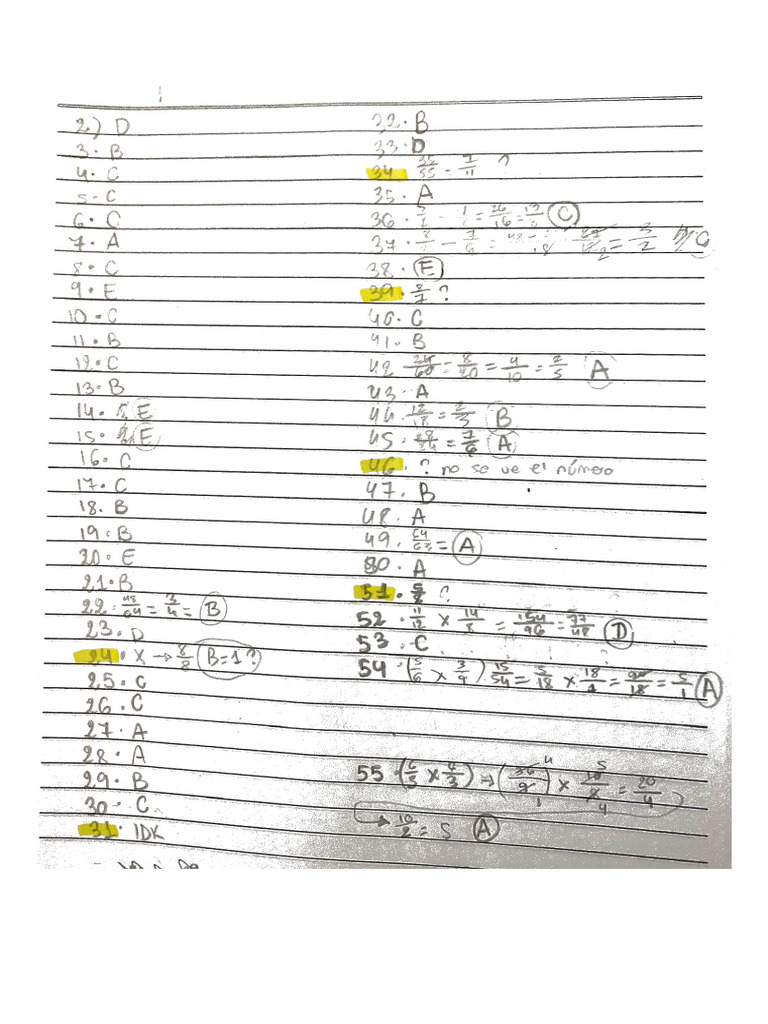 2) D
3. B
4. C
5. C
6. C
7. A
8. C
9. E
10. C
11. B
12. C
13. B
14. E
15. E
16. C
17. C
18. B
19. B
20. E
21. B
22. 48/64 = 3/4 = B
23. D
24. X → 8/8 B=1?
25. C
26. C
27. A
28. A
29. B
30. C
31. IDK
32. B
33. D
34. 35/55 - 7/11 ?
35. A
36. = 26/16 = 13/8 C
37. = 3/2 C
38. E
39. 8/7 ?
40. C
41. B
42 24/60 = 8/20 = 4/10 = 2/5 A
43. A
44. 12/18 = 2/3 B
45. 28/24 = 7/6 A
46. ? no se ve el número
47. B
48. A
49. 64/63 = A
50. A
51. 5/8 ?
52. 11/12 x 14/8 = 154/96 = 77/48 D
53. C
54. (5/6 x 3/9) 15/54 = 5/18 x 18/1 = 90/18 = 5/1 A
55. (6/3 x 6/3) → (36/9) x 10/8 = 20/4
→ 10/2 = 5 A